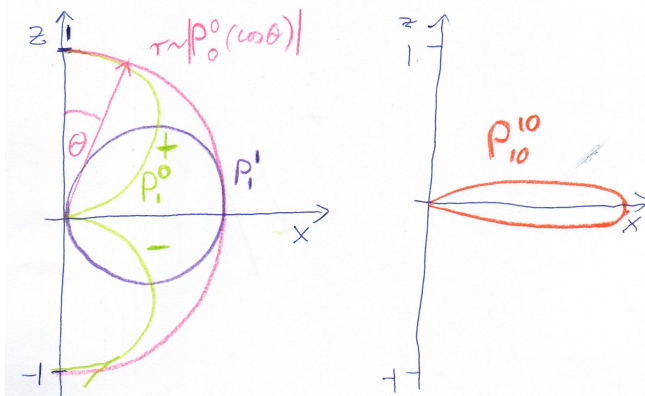 z 1
r~|P₀⁰(cosθ)|
θ
+
P₁⁰
P₁¹
−
x
-1
z
1
P₁₀¹⁰
x
-1